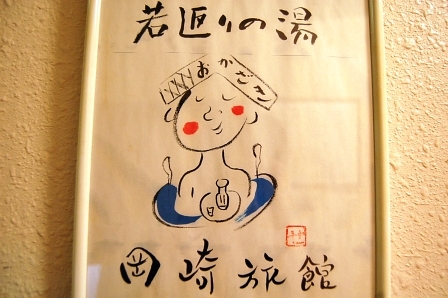 若返りの湯
おかざき
岡崎旅館